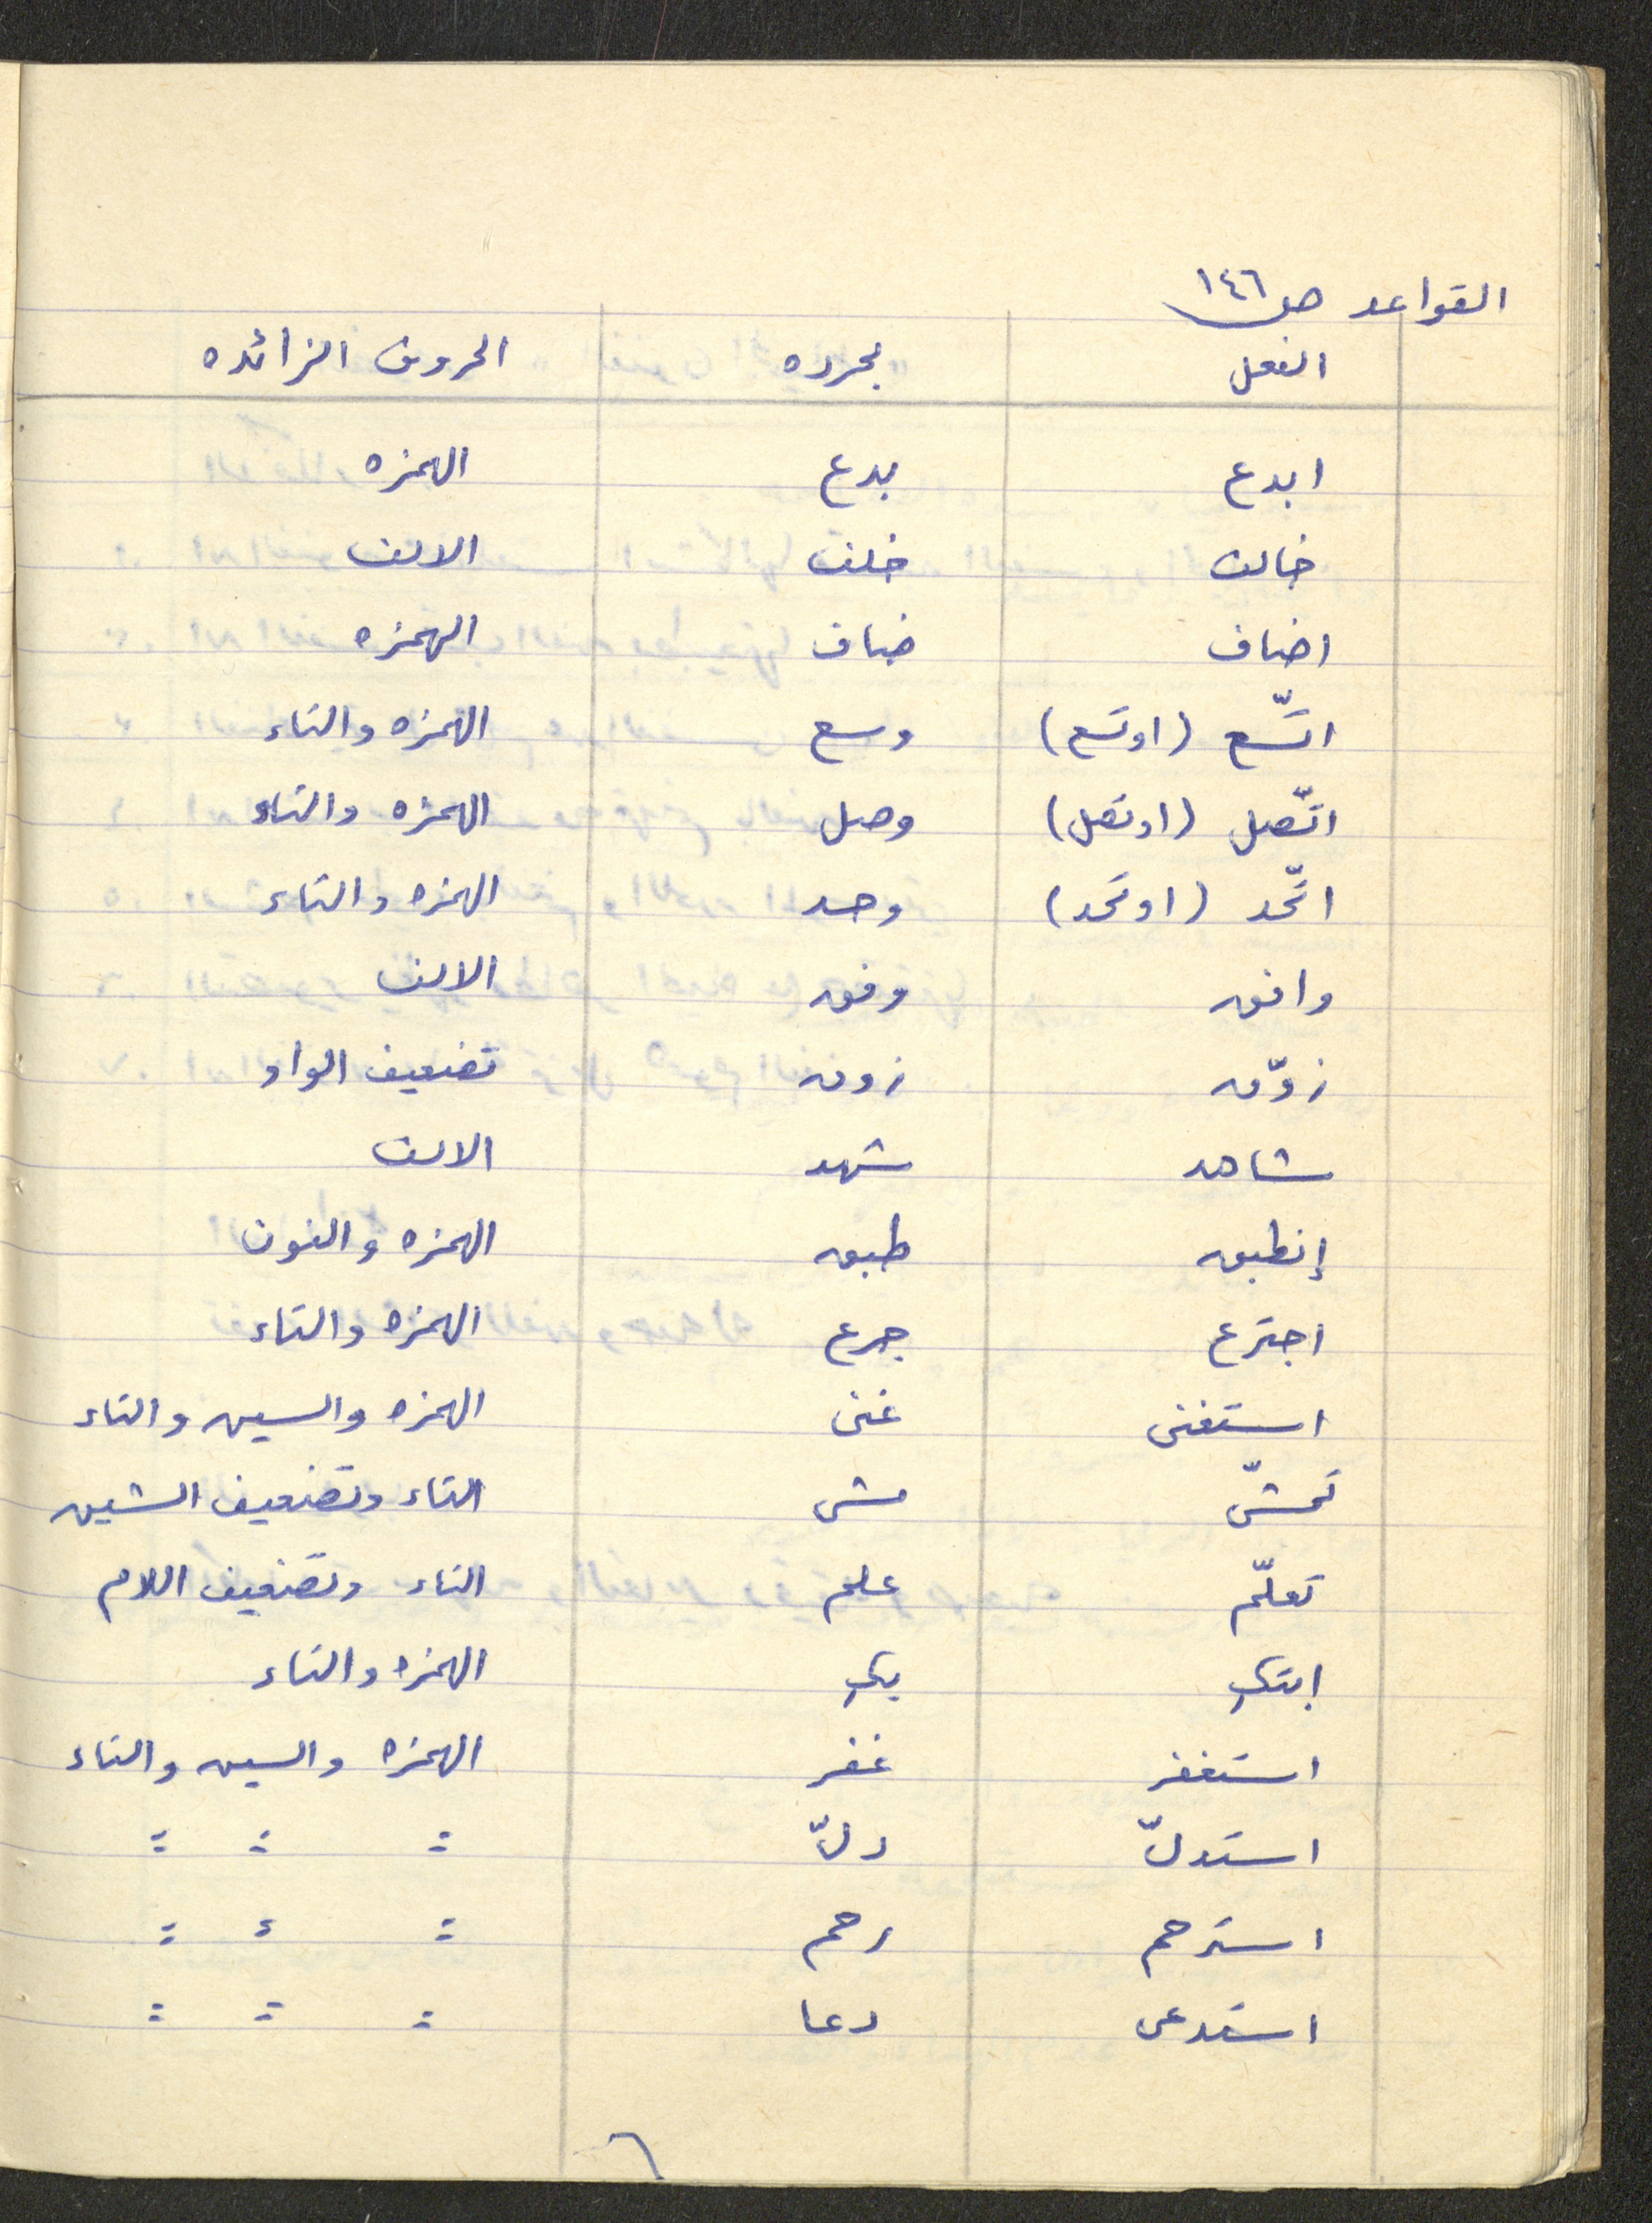 القواعد ص ١٤٦
الفعل مجرده الحروف الزائده
ابدع بدع الهمزه
خالف خلف الالف
اضاف ضاف الهمزه
اتّسع (اوتسع) وسع الهمزه والتاء
اتّصل (اوتصل) وصل الهمزه والتاء
اتّحد (اوتحد) وحد الهمزه والتاء
وافق وفق الالف
زوّق زوق تضعيف الواو
شاهد شهد الالف
إنطبق طبق الهمزه والنون
اجترع جرع الهمزه والتاء
استغنى غنى الهمزه والسين والتاء
تمشّى مشى التاء وتضعيف الشين
تعلّم علم التاء وتضعيف اللام
ابتكر بكر الهمزه والتاء
استغفر غفر الهمزه والسين والتاء
استدلّ دلّ = = =
استرحم رحم = = =
استدعى دعا = = =
٦